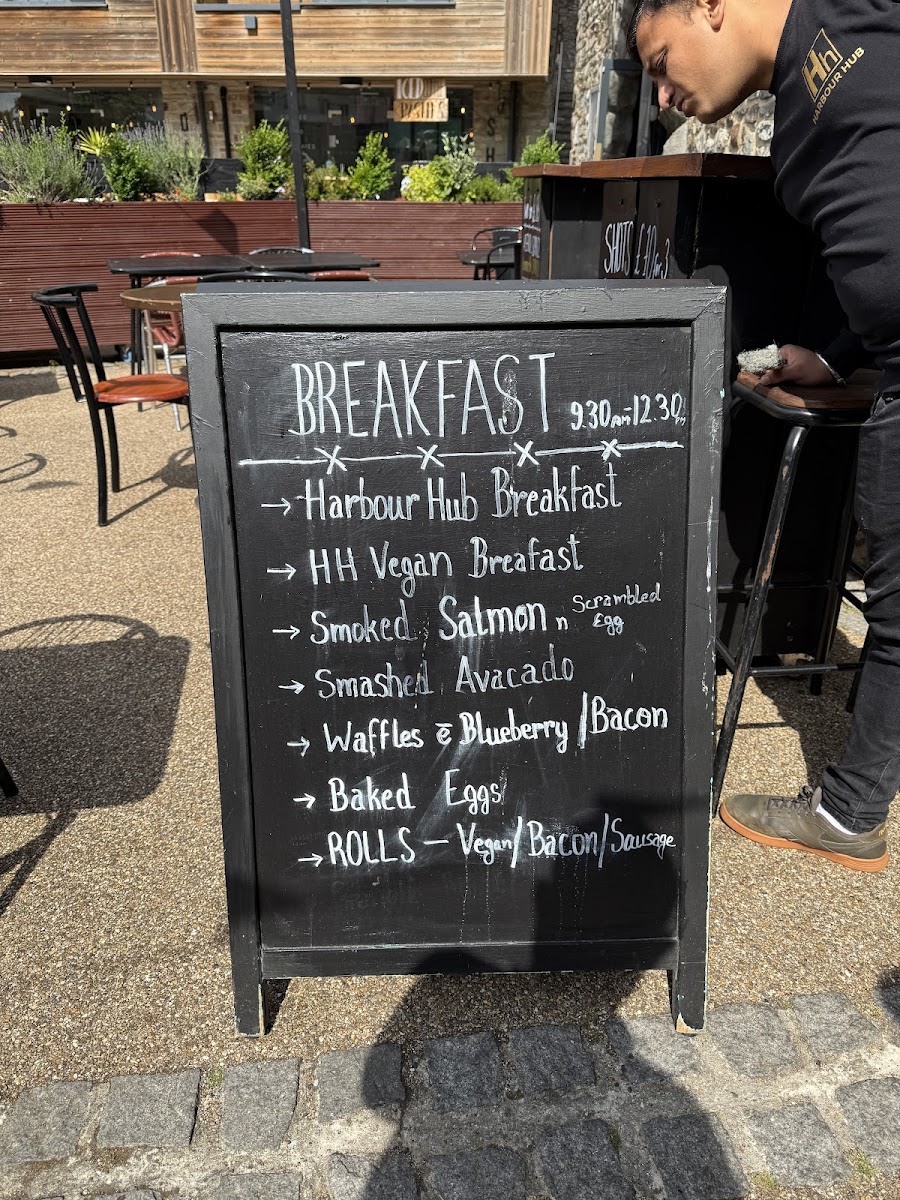 Hh
HARBOUR HUB
SHOTS £10 for 3
BREAKFAST 9.30AM-12.30PM
→ Harbour Hub Breakfast
→ HH Vegan Breafast
→ Smoked Salmon n Scrambled
Egg
→ Smashed Avacado
→ Waffles c̄ Blueberry/Bacon
→ Baked Eggs
→ ROLLS – Vegan/Bacon/Sausage